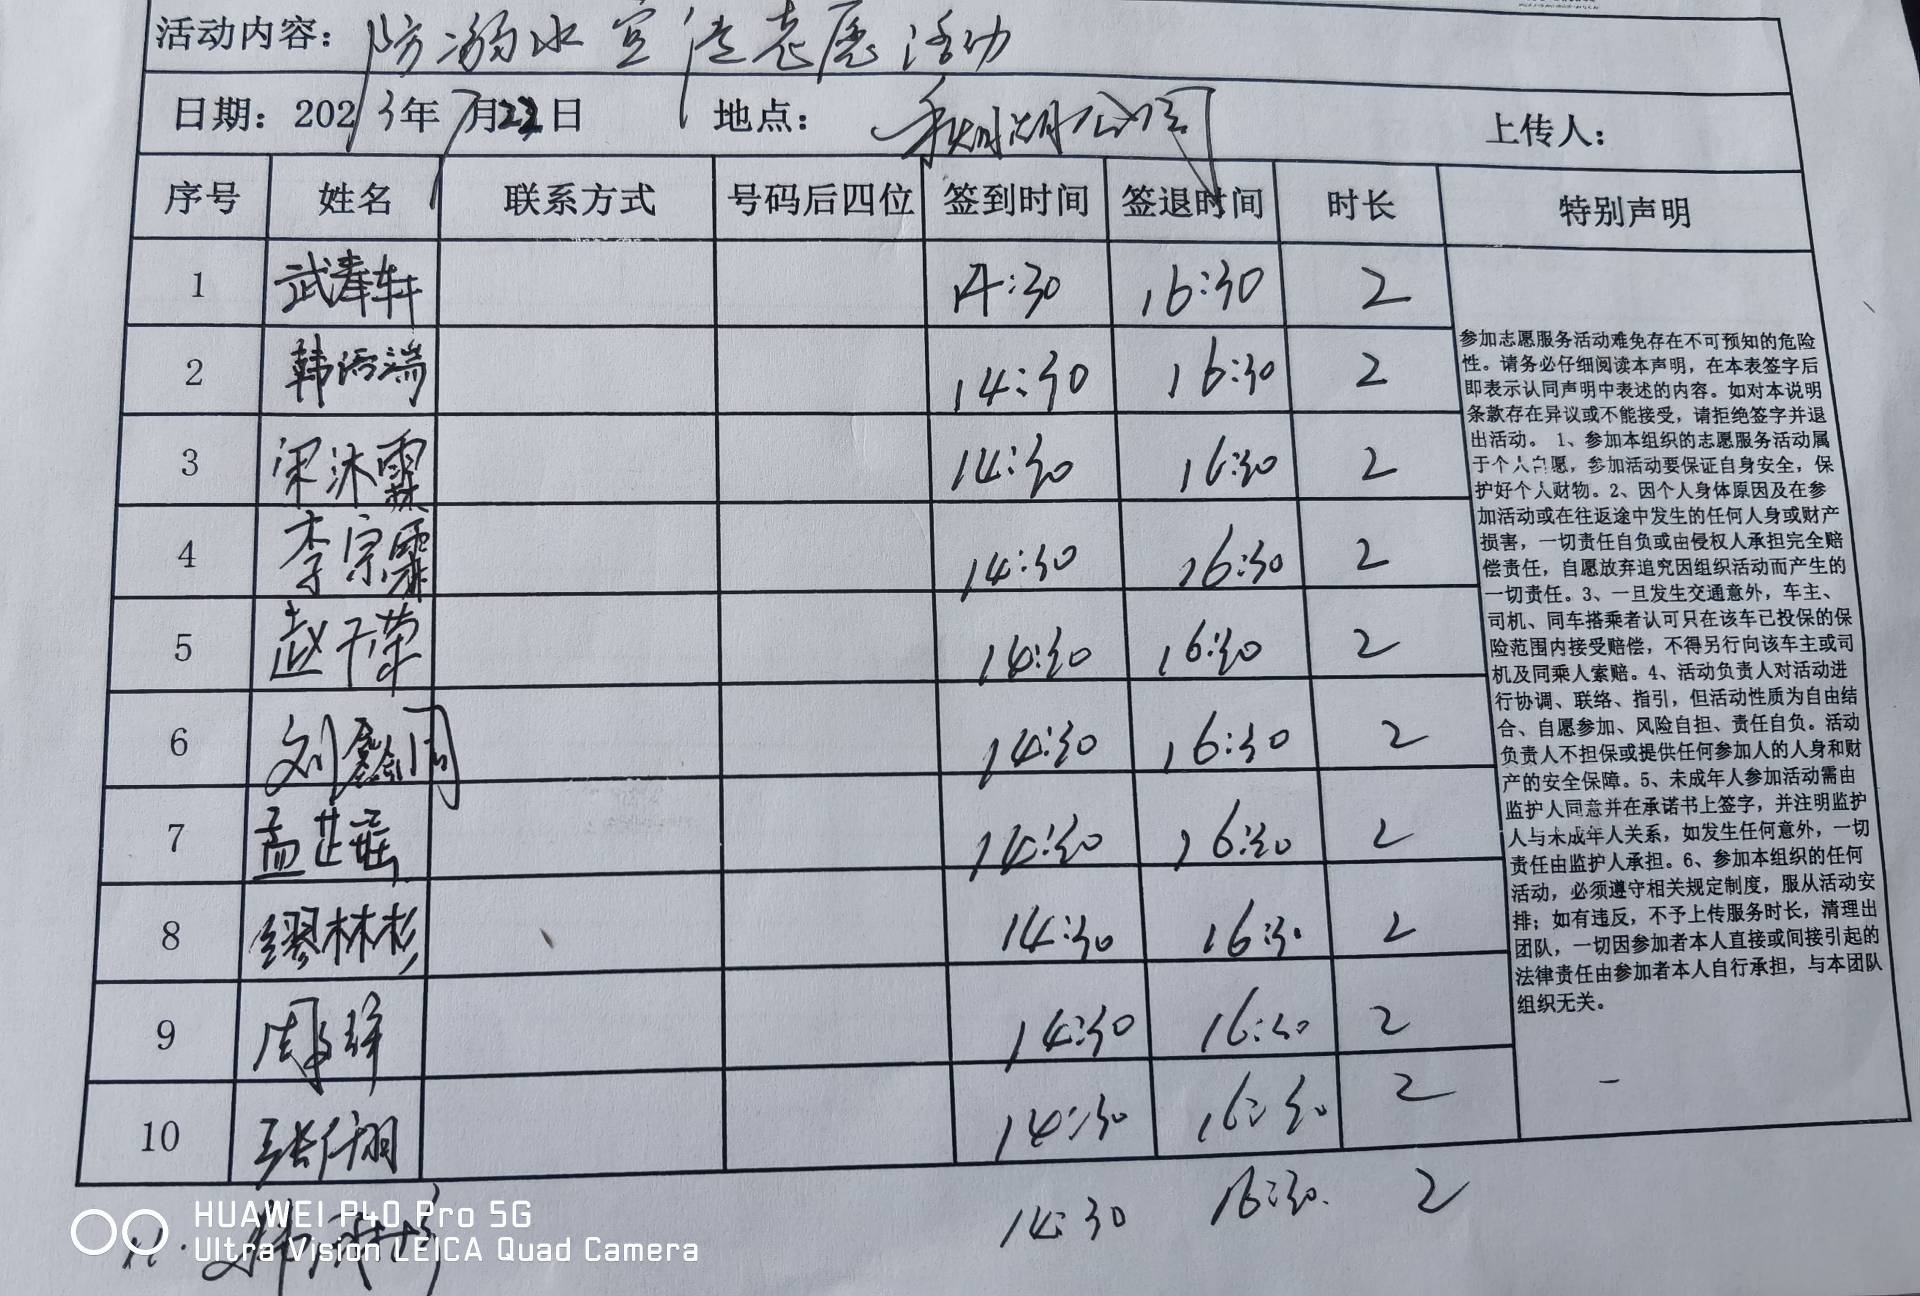 活动内容: 防溺水宣传志愿活动
日期: 2023年7月22日 地点: 秋湖公园 上传人:
序号 姓名 联系方式 号码后四位 签到时间 签退时间 时长 特别声明
1 14:30 16:30 2
2 韩语端 14:30 16:30 2
3 宋沐霖 14:30 16:30 2
4 李宗霖 14:30 16:30 2
5 赵于荣 14:30 16:30 2
6 刘鑫同 14:30 16:30 2
7 孟芷瑶 14:30 16:30 2
8 缪林彬 14:30 16:30 2
9 14:30 16:30 2
10 张仟翔 14:30 16:30 2
11. 14:30 16:30. 2
参加志愿服务活动难免存在不可预知的危险
性。请务必仔细阅读本声明，在本表签字后
即表示认同声明中表述的内容。如对本说明
条款存在异议或不能接受，请拒绝签字并退
出活动。 1、参加本组织的志愿服务活动属
于个人自愿，参加活动要保证自身安全，保
护好个人财物。2、因个人身体原因及在参
加活动或在往返途中发生的任何人身或财产
损害，一切责任自负或由侵权人承担完全赔
偿责任，自愿放弃追究因组织活动而产生的
一切责任。3、一旦发生交通意外，车主、
司机、同车搭乘者认可只在该车已投保的保
险范围内接受赔偿，不得另行向该车主或司
机及同乘人索赔。4、活动负责人对活动进
行协调、联络、指引，但活动性质为自由结
合、自愿参加、风险自担、责任自负。活动
负责人不担保或提供任何参加人的人身和财
产的安全保障。5、未成年人参加活动需由
监护人同意并在承诺书上签字，并注明监护
人与未成年人关系，如发生任何意外，一切
责任由监护人承担。6、参加本组织的任何
活动，必须遵守相关规定制度，服从活动安
排；如有违反，不予上传服务时长，清理出
团队，一切因参加者本人直接或间接引起的
法律责任由参加者本人自行承担，与本团队
组织无关。
HUAWEI P40 Pro 5G
Ultra Vision LEICA Quad Camera